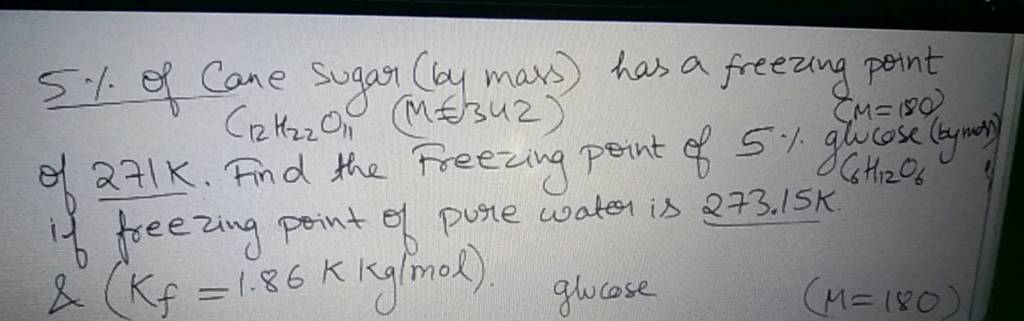 5% of Cane Sugar (by mass) has a freezing point
C12H22O11 (M=342) (M=180)
of 271K. Find the Freezing point of 5% glucose (by mass)
C6H12O6
if freezing point of pure water is 273.15K.
& (Kf = 1.86 K Kg/mol). glucose (M=180)